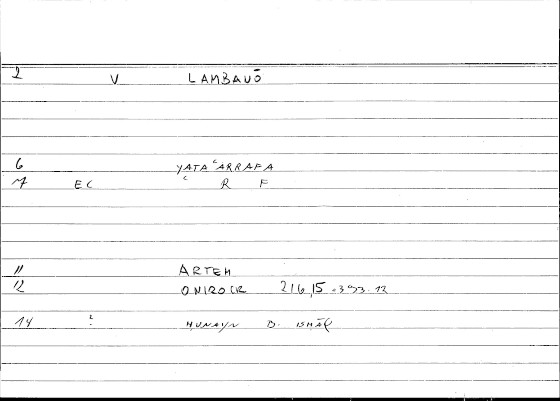 2 V LAMBANŌ
6 YATAʿARRAFA
7 EC ʿ R F
11 ARTEM
12 ONIROCR 216,15 = 393.12
14 ? ḤUNAYN B. ISḤĀQ